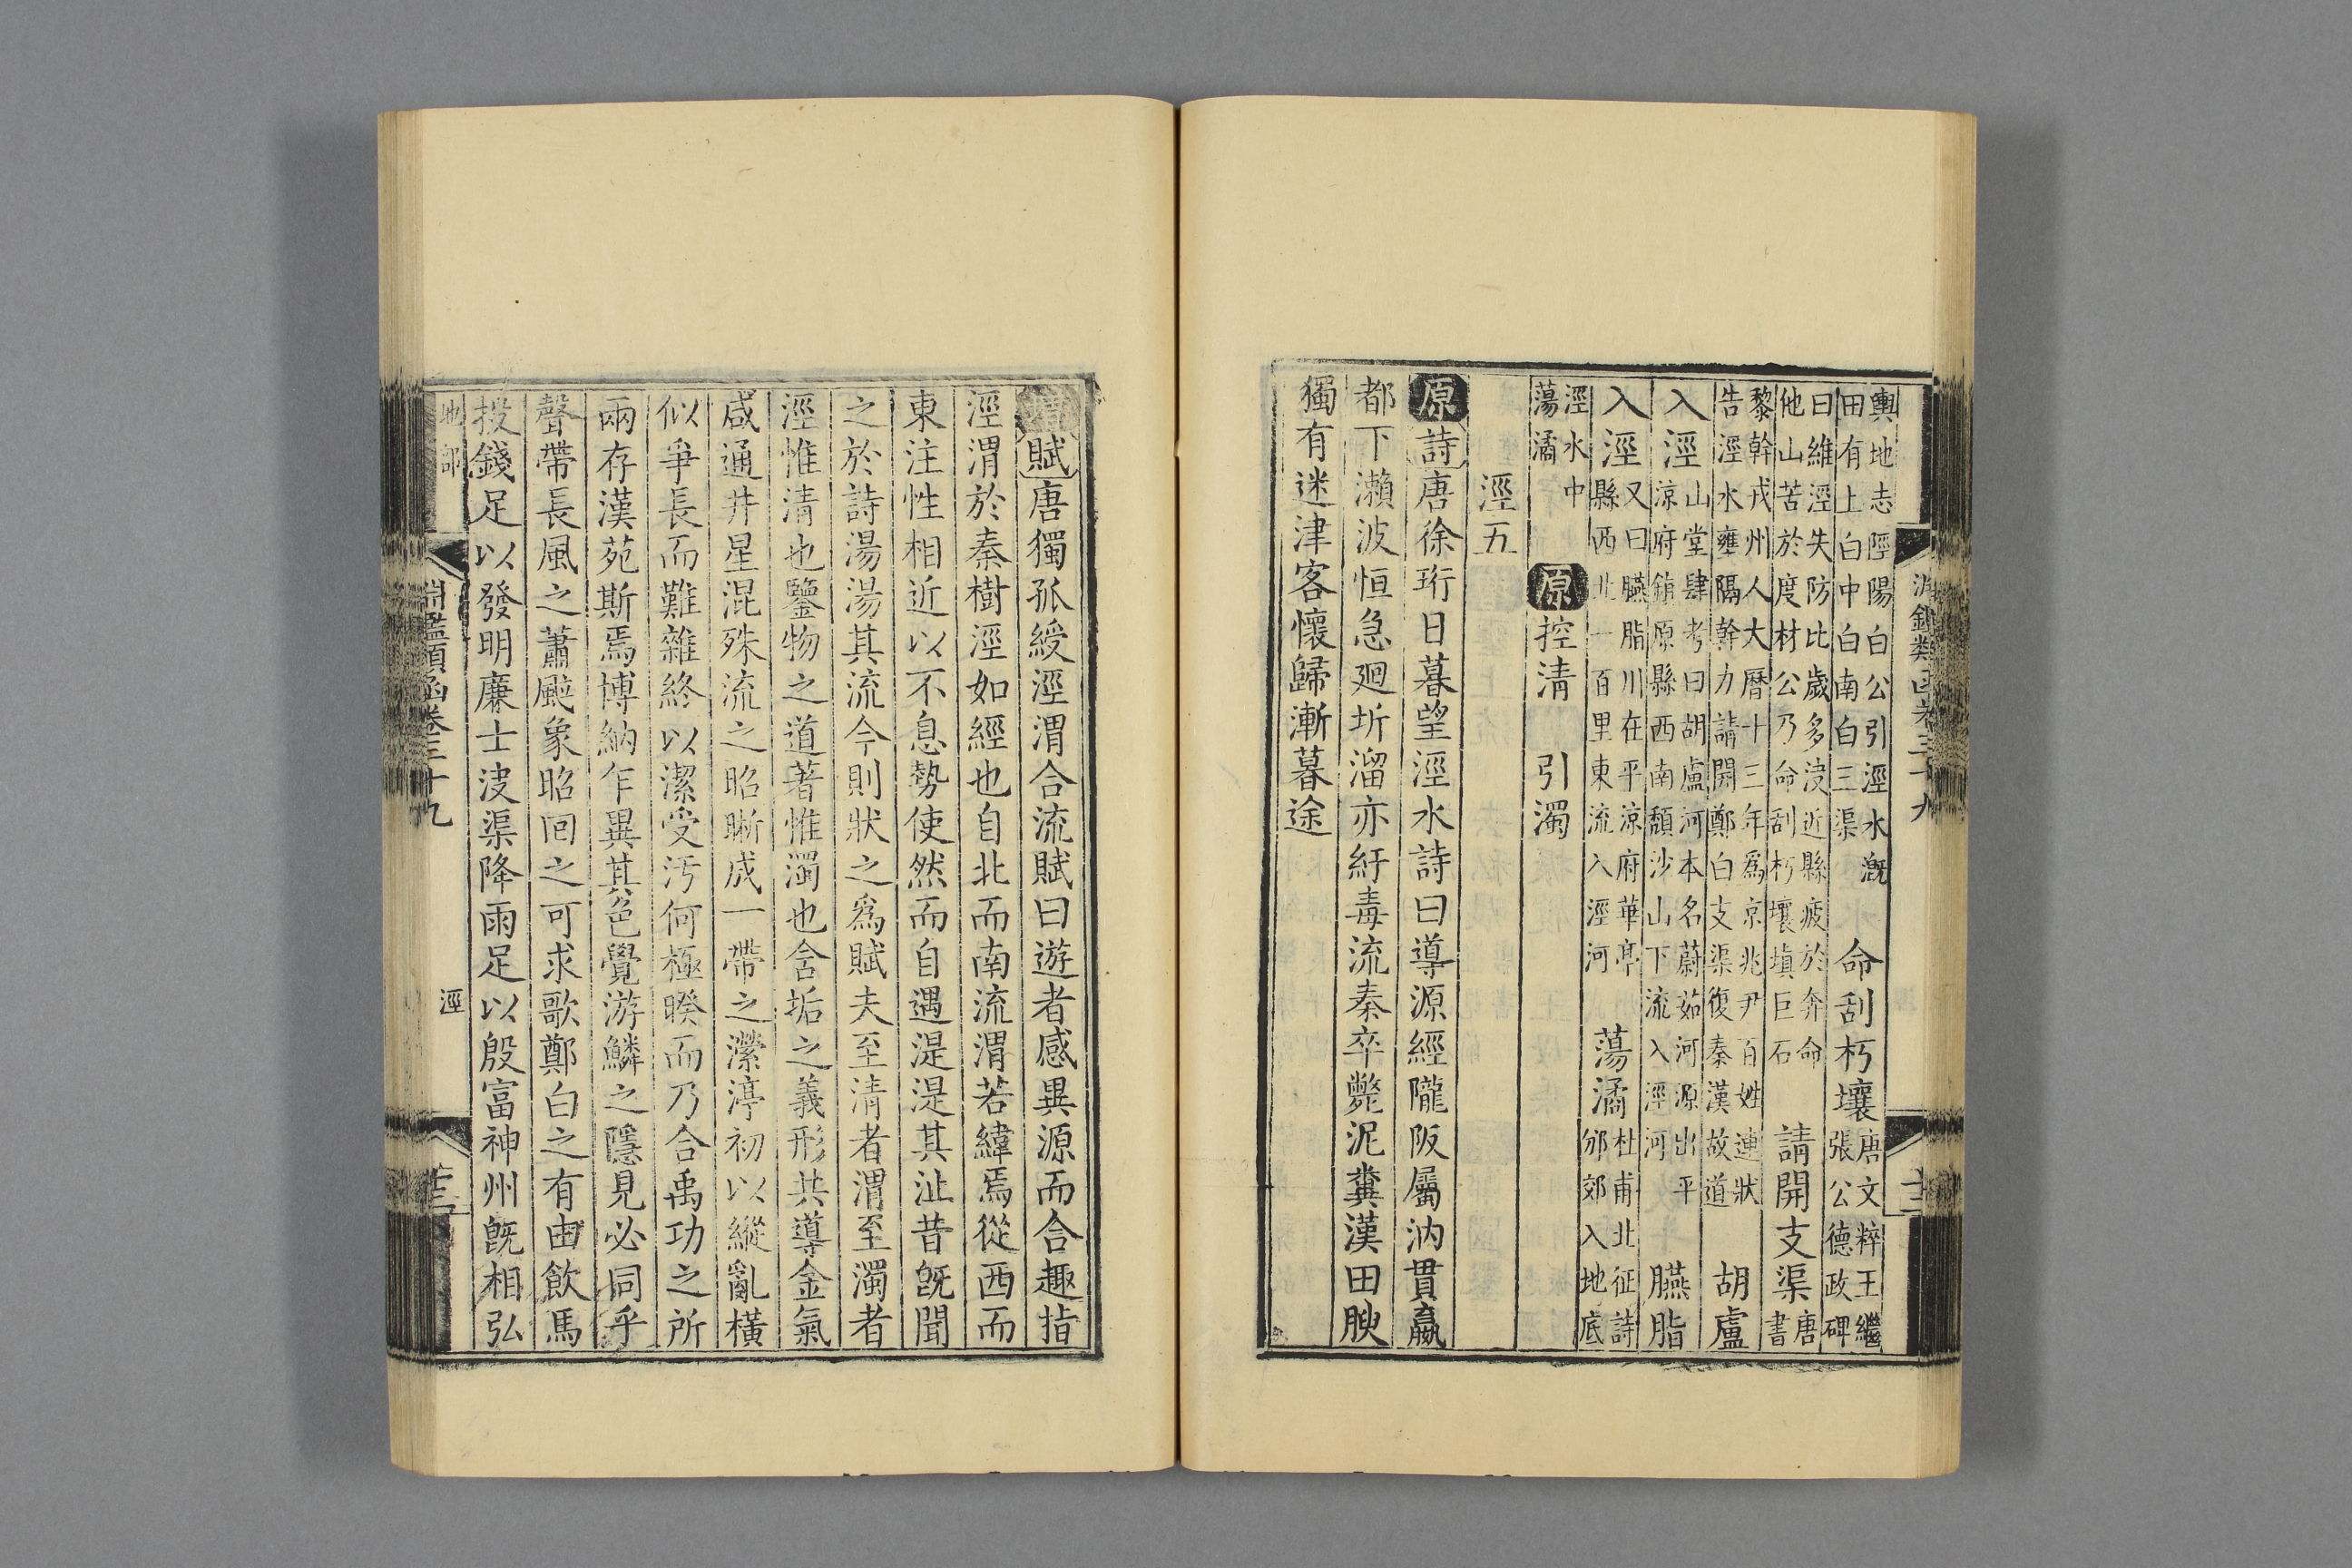 輿地志陘陽白公引涇水漑
田有上白中白南白三渠
命刮朽壤
唐文粹王繼
張公德政碑
曰維涇失防比歲多涭近縣疲於奔命
他山苦於度材公乃命刮朽壤塡巨石
請開支渠
唐
書
黎幹戎州人大曆十三年爲京兆尹百姓連狀
告涇水壅隔幹力請開鄭白支渠復秦漢故道
胡盧
入涇
山堂肆考曰胡盧河本名蔚茹河源出平
涼府鎮原縣西南頹沙山下流入涇河
臙脂
入涇
又曰臙脂川在平涼府華亭
縣西北一百里東流入涇河
蕩潏
杜甫北征詩
邠郊入地底
涇水中
蕩潏
原控清
引濁
涇五
原詩唐徐珩日暮望涇水詩曰導源經隴阪屬汭貫嬴
都下瀨波恒急廻圻溜亦紆毒流秦卒斃泥糞漢田腴
獨有迷津客懷歸漸暮途
賦唐獨孤綬涇渭合流賦曰遊者感異源而合趣指
涇渭於秦樹涇如經也自北而南流渭若緯焉從西而
東注性相近以不息勢使然而自遇湜湜其沚昔旣聞
之於詩湯湯其流今則狀之爲賦夫至清者渭至濁者
涇惟清也鑒物之道著惟濁也含垢之義形共導金氣
咸通井星混殊流之昭晣成一帶之瀠渟初以縱亂橫
似爭長而難雜終以潔受汚何極暌而乃合禹功之所
兩存漢苑斯焉博納乍異其色覺游鱗之隱見必同乎
聲帶長風之蕭颸象昭囘之可求歌鄭白之有由飮馬
投錢足以發明廉士決渠降雨足以殷富神州旣相弘
地部
淵鑑類函卷三十九
涇